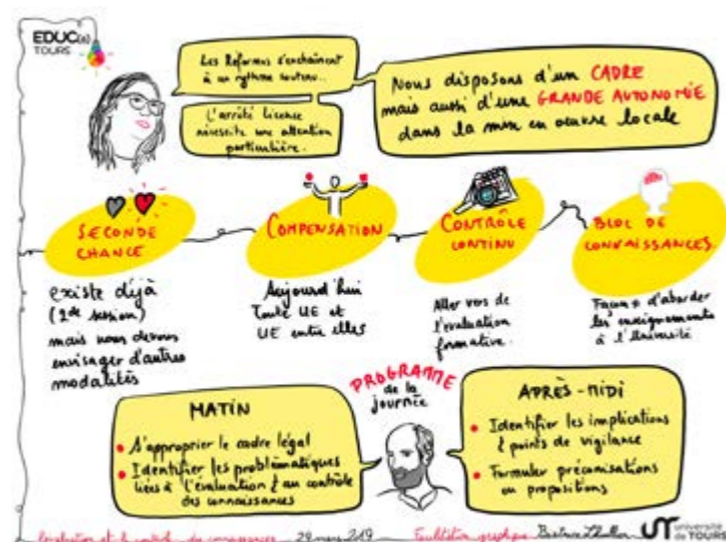 EDUC(s)
TOURS
Les Réformes s'enchaînent
à un rythme soutenu...
L'arrêté licence
nécessite une attention
particulière.
Nous disposons d'un CADRE
mais aussi d'une GRANDE AUTONOMIE
dans la mise en oeuvre locale
SECONDE
CHANCE
existe déjà
(2de session)
mais nous devons
envisager d'autres
modalités
COMPENSATION
Aujourd'hui
Toute UE et
UE entre elles
CONTRÔLE
CONTINU
Aller vers de
l'évaluation
formative.
BLOC DE
CONNAISSANCES
Façon d'aborder
les enseignements
à l'Université
PROGRAMME
de la
journée
MATIN
S'approprier le cadre légal
Identifier les problématiques
liées à l'évaluation & au contrôle
des connaissances
APRÈS-MIDI
Identifier les implications
& points de vigilance
Formuler préconisations
ou propositions
29 mars 2019 Facilitation graphique Béatrice
UT université
de TOURS